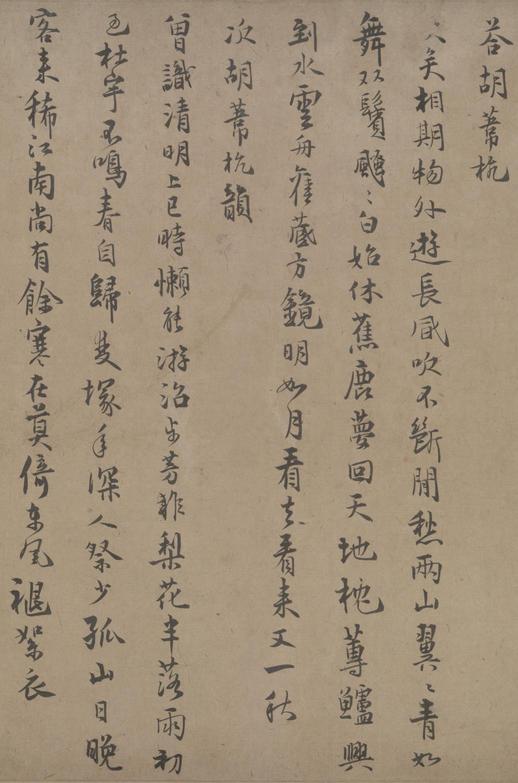 荅胡葦杭
久矣相期物外遊長風吹不斷閒愁兩山翼〻青如
舞双鬢颼〻白始休蕉鹿夢回天地枕蓴鱸興
到水雲舟舊藏方鏡明如月看去看来又一秋
次胡葦杭韻
曾識清明上巳時懶能游冶步芳菲梨花半落雨初
過杜宇不鳴春自歸雙塚年深人祭少孤山日晚
客来稀江南尚有餘寒在莫倚東風褪絮衣